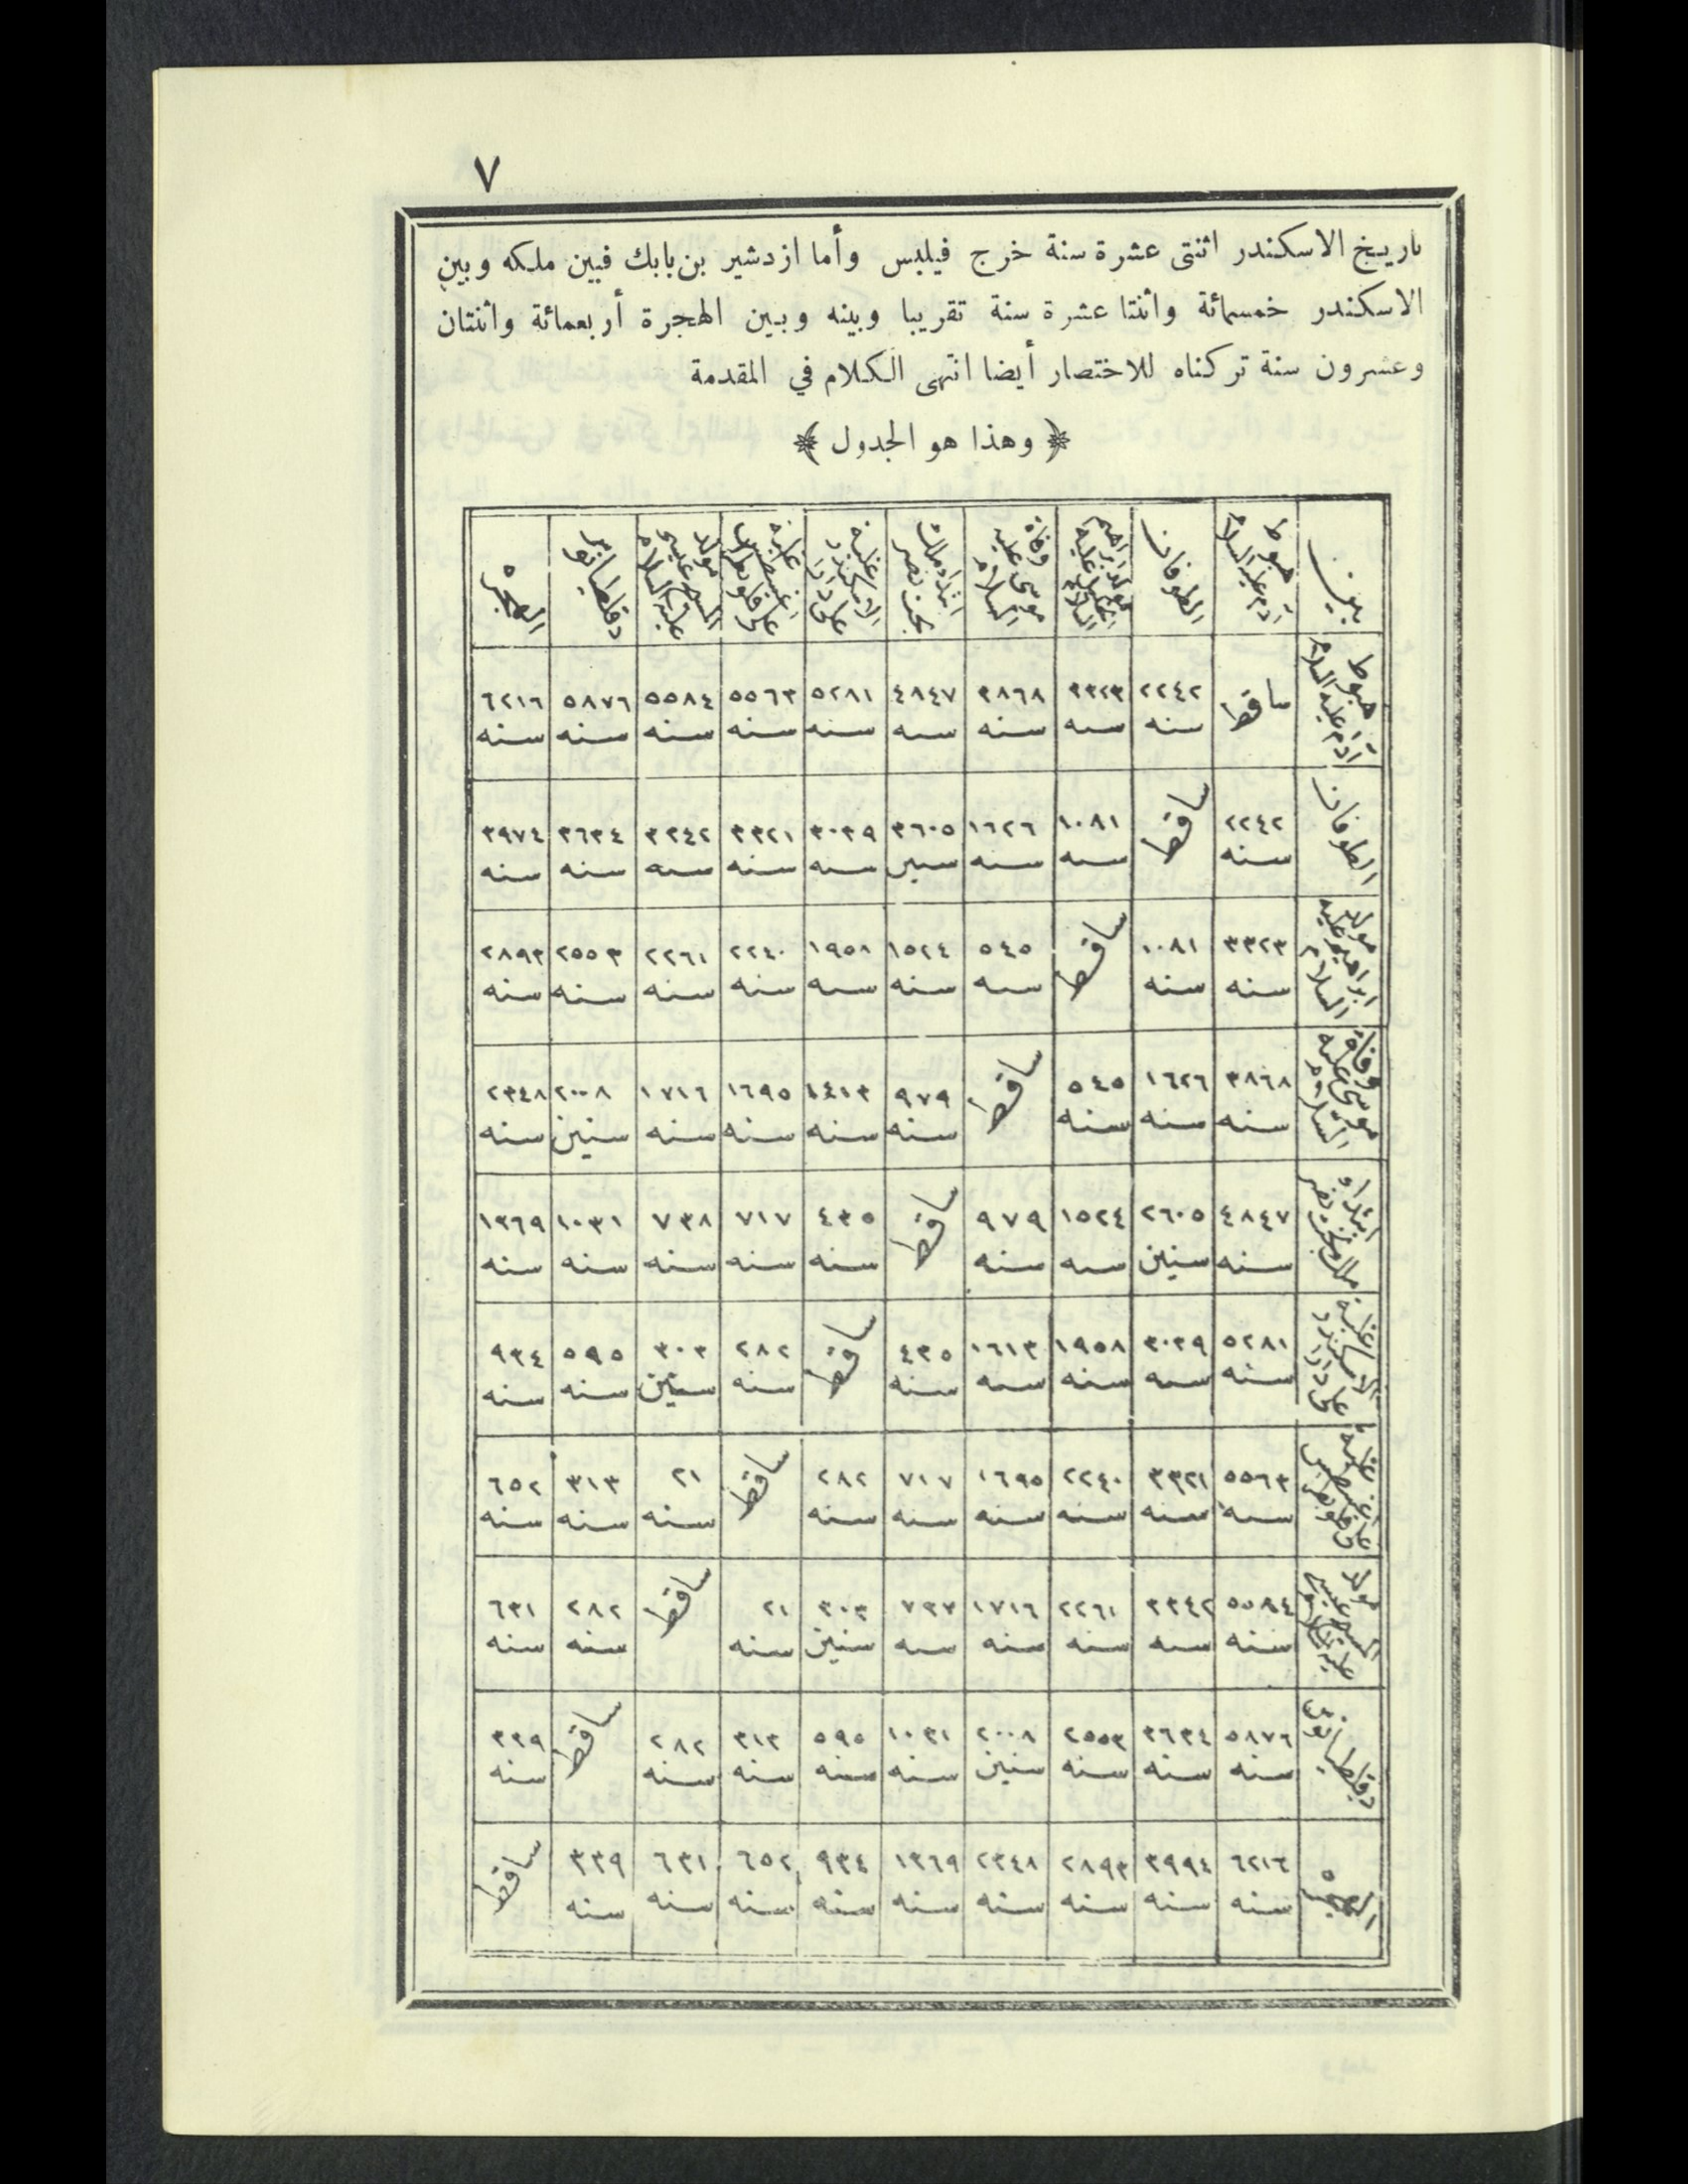 ٧
تاريخ الاسكندر اثنتى عشرة سنة خرج فيلبس وأما ازدشير بن بابك فبين ملكه وبين
الاسكندر خمسمائة واثنتا عشرة سنة تقريبا وبينه وبين الهجرة أربعمائة واثنتان
وعشرون سنة تركناه للاختصار أيضا انتهى الكلام في المقدمة
﴿ وهذا هو الجدول ﴾
بين هبوط آدم عليه السلام الطوفان مولد ابراهيم الخليل عليه السلام وفاة موسى عليه السلام ابتداء ملك بخت نصر غلبة الاسكندر على دارا غلبة اغسطس على قلوبطرا مولد المسيح عيسى عليه السلام دقلطيانوس الهجره
هبوط آدم عليه السلام ساقط ٢٢٤٢ سنه ٣٣٢٣ سنه ٣٨٦٨ سنه ٤٨٤٧ سنه ٥٢٨١ سنه ٥٥٦٣ سنه ٥٥٨٤ سنه ٥٨٧٦ سنه ٦٢١٦ سنه
الطوفان ٢٢٤٢ سنه ساقط ١٠٨١ سنه ١٦٢٦ سنه ٣٦٠٥ سنين ٣٠٣٩ سنه ٣٣٢١ سنه ٣٣٤٢ سنه ٣٦٣٤ سنه ٣٩٧٤ سنه
مولد ابراهيم عليه السلام ٣٣٢٣ سنه ١٠٨١ سنه ساقط ٥٤٥ سنه ١٥٢٤ سنه ١٩٥٨ سنه ٢٢٤٠ سنه ٢٢٦١ سنه ٢٥٥٣ سنه ٢٨٩٣ سنه
وفاة موسى عليه السلام ٣٨٦٨ سنه ١٦٢٦ سنه ٥٤٥ سنه ساقط ٩٧٩ سنه ١٤١٣ سنه ١٦٩٥ سنه ١٧١٦ سنه ٢٠٠٨ سنين ٢٣٤٨ سنه
ابتداء ملك بخت نصر ٤٨٤٧ سنه ٢٦٠٥ سنين ١٥٢٤ سنه ٩٧٩ سنه ساقط ٤٣٥ سنه ٧١٧ سنه ٧٣٨ سنه ١٠٣١ سنه ١٣٦٩ سنه
غلبة الاسكندر على دارا ٥٢٨١ سنه ٣٠٣٩ سنه ١٩٥٨ سنه ١٦١٣ سنه ٤٣٥ سنه ساقط ٢٨٢ سنه ٣٠٣ سنين ٥٩٥ سنه ٩٣٤ سنه
غلبة اغسطس على قلوبطرا ٥٥٦٣ سنه ٣٣٢١ سنه ٢٢٤٠ سنه ١٦٩٥ سنه ٧١٧ سنه ٢٨٢ سنه ساقط ٢١ سنه ٣١٣ سنه ٦٥٢ سنه
مولد المسيح عيسى عليه السلام ٥٥٨٤ سنه ٣٣٤٢ سنه ٢٢٦١ سنه ١٧١٦ سنه ٧٣٧ سنه ٣٠٣ سنين ٢١ سنه ساقط ٢٨٢ سنه ٦٣١ سنه
دقلطيانوس ٥٨٧٦ سنه ٣٦٣٤ سنه ٢٥٥٣ سنه ٢٠٠٨ سنين ١٠٣١ سنه ٥٩٥ سنه ٣١٣ سنه ٢٨٢ سنه ساقط ٣٣٩ سنه
الهجره ٦٢١٦ سنه ٣٩٩٤ سنه ٢٨٩٣ سنه ٢٣٤٨ سنه ١٣٦٩ سنه ٩٣٤ سنه ٦٥٢ سنه ٦٣١ سنه ٣٣٩ سنه ساقط